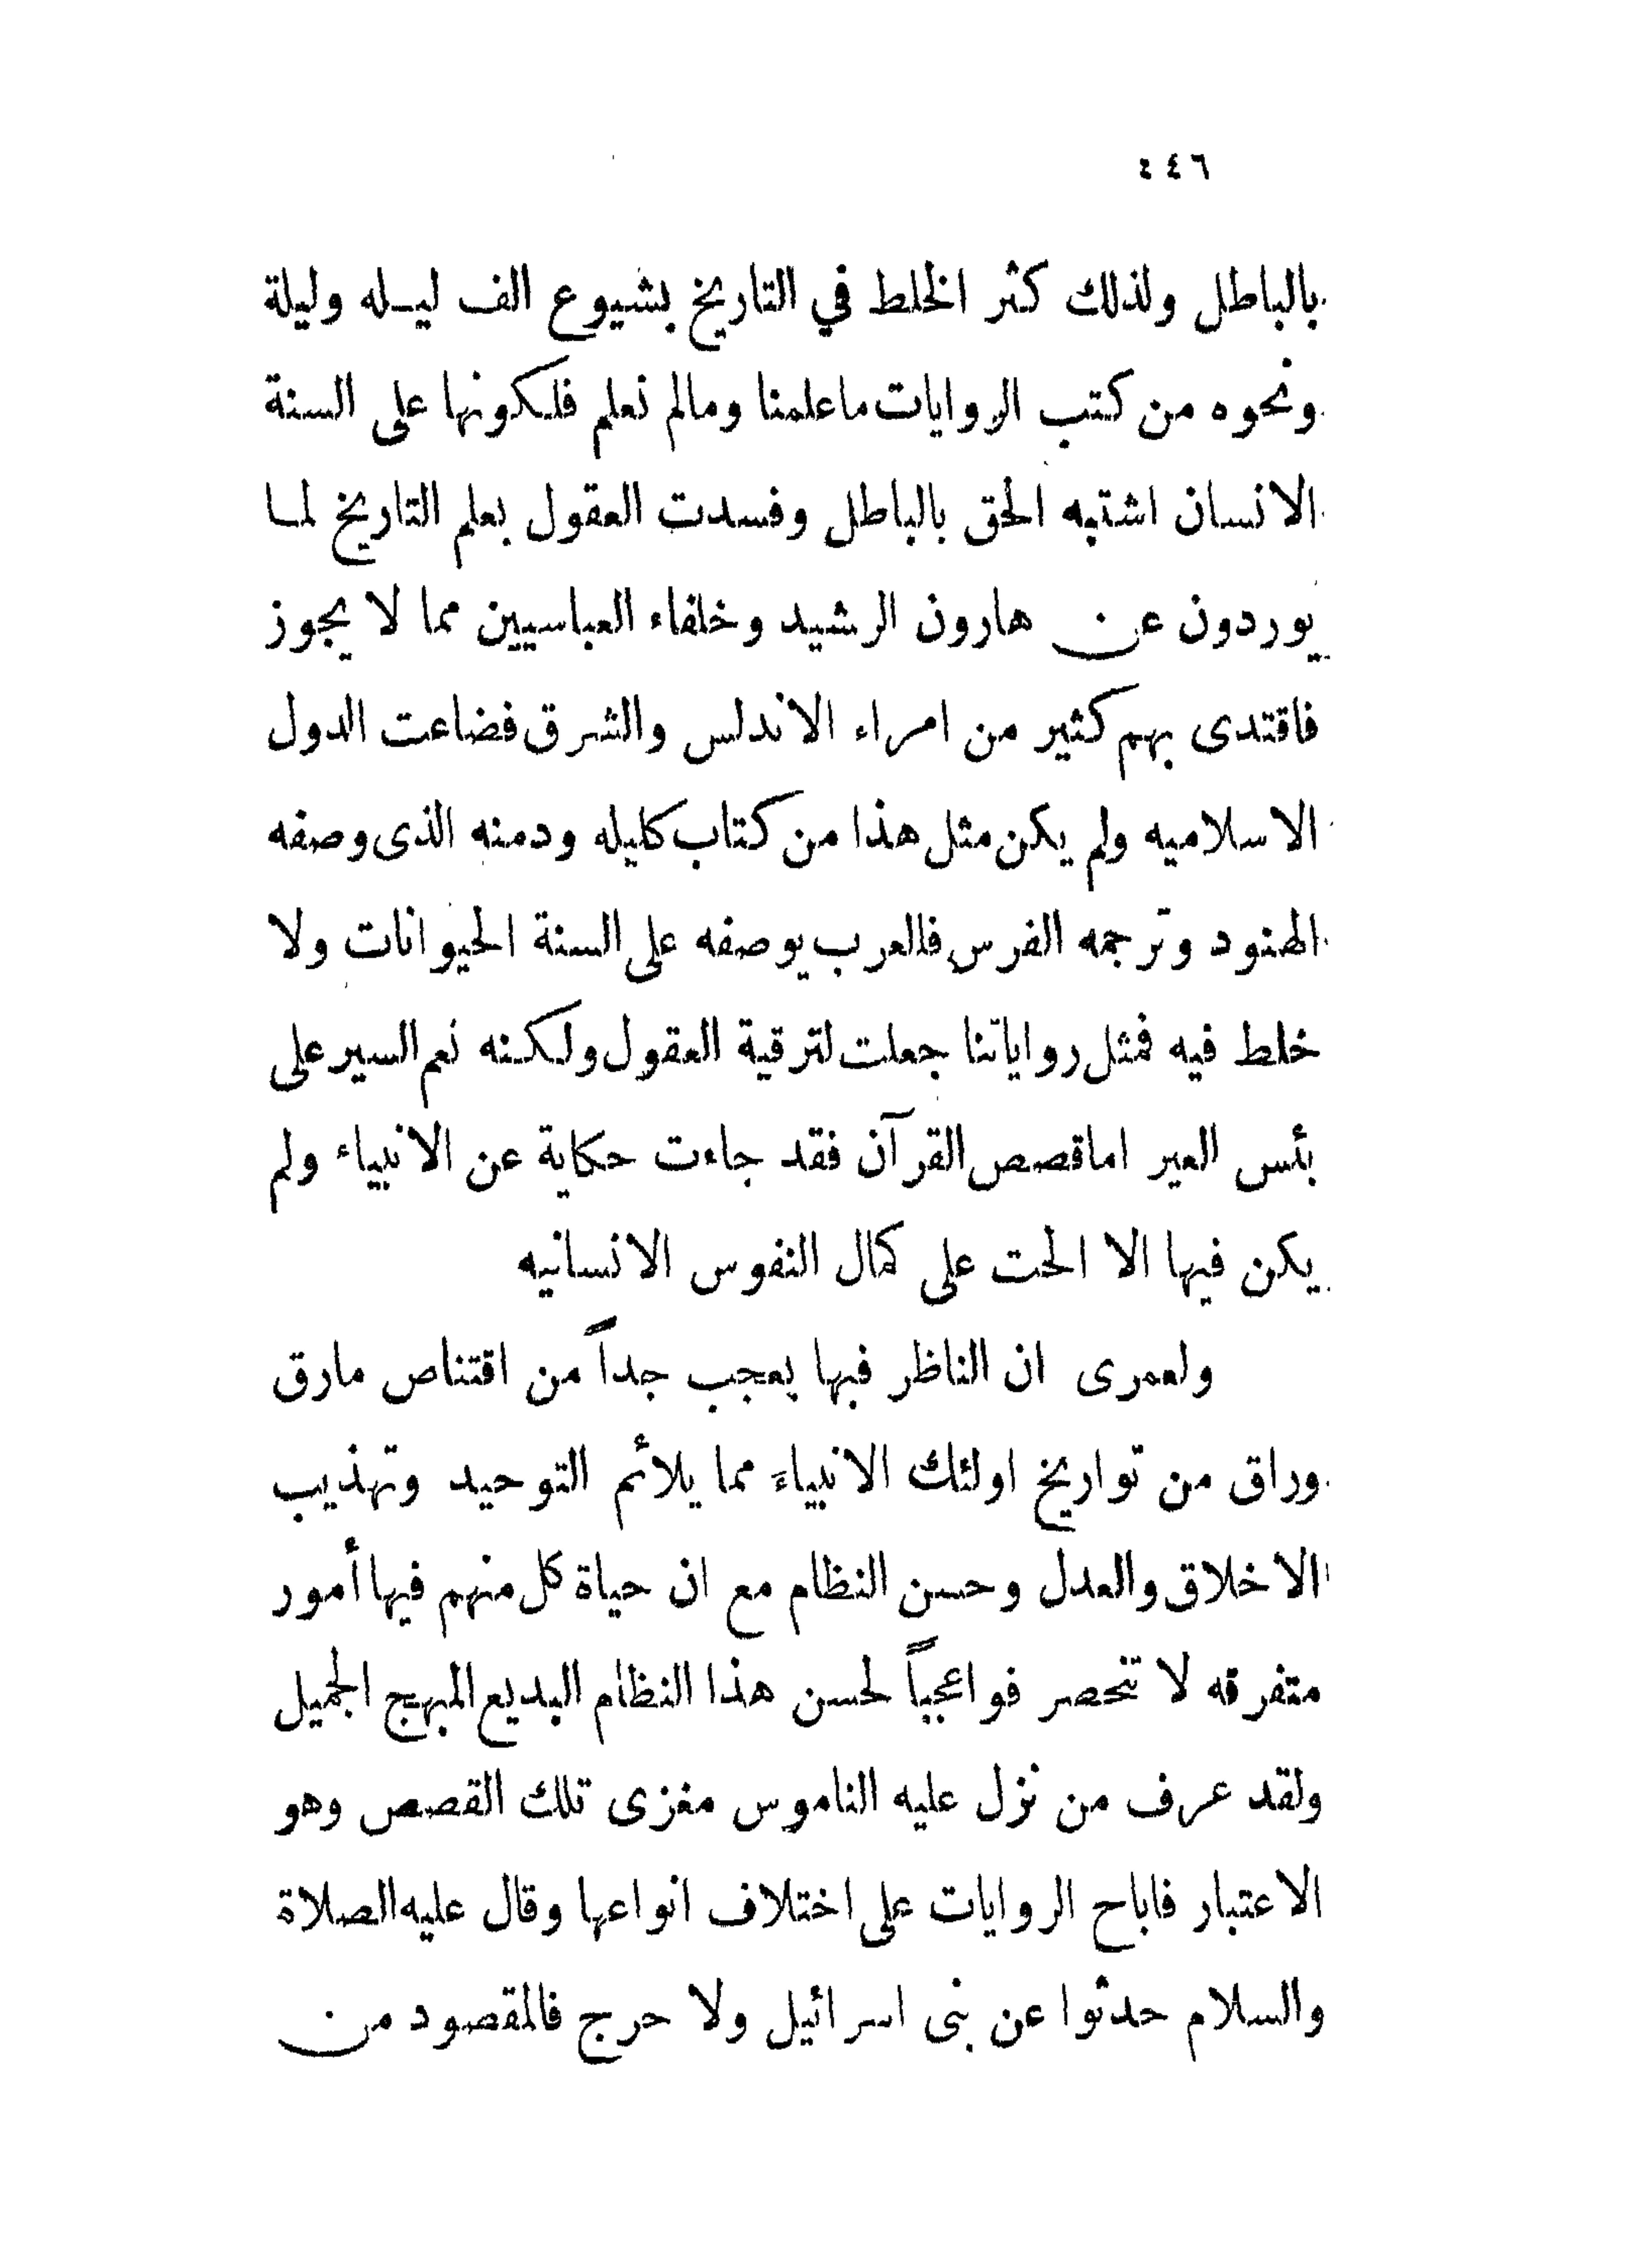 ٤٤٦
بالباطل ولذلك كثر الخلط في التاريخ بشيوع الف ليله وليلة
ونحوه من كتب الروايات ماعلمنا ومالم نعلم فلكونها على السنة
الانسان اشتبه الحق بالباطل وفسدت العقول بعلم التاريخ لما
يوردون عن هارون الرشيد وخلفاء العباسيين مما لا يجوز
فاقتدى بهم كثير من امراء الاندلس والشرق فضاعت الدول
الاسلاميه ولم يكن مثل هذا من كتاب كليله ودمنه الذى وصفه
الهنود وترجمه الفرس فالعرب بوصفه على السنة الحيوانات ولا
خلط فيه فمثل رواياتنا جعلت لترقية العقول ولكنه نعم السير على
بئس العير اماقصص القرآن فقد جاءت حكاية عن الانبياء ولم
يكن فيها الا الحت على كمال النفوس الانسانيه
ولعمرى ان الناظر فيها يعجب جداً من اقتناص مارق
وراق من تواريخ اولئك الانبياء مما يلائم التوحيد وتهذيب
الاخلاق والعدل وحسن النظام مع ان حياة كل منهم فيها أمور
متفرقه لا تنحصر فواعجباً لحسن هذا النظام البديع المبهج الجميل
ولقد عرف من نزل عليه الناموس مغزى تلك القصص وهو
الاعتبار فاباح الروايات على اختلاف انواعها وقال عليه الصلاة
والسلام حدثوا عن بنى اسرائيل ولا حرج فالمقصود من